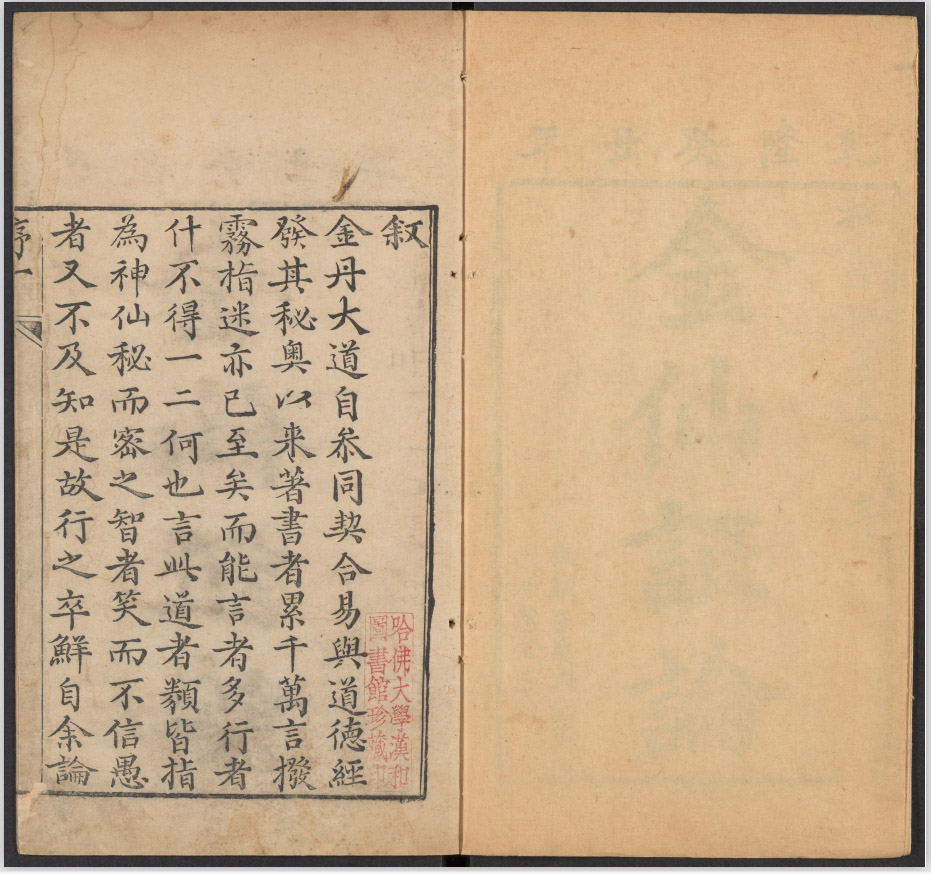 叙
金丹大道自叅同契合易與道德經
發其秘奥以来著書者累千萬言撥
霧指迷亦已至矣而能言者多行者
什不得一二何也言此道者類皆指
為神仙秘而密之智者笑而不信愚
者又不及知是故行之卒鮮自余論
序一
哈佛大學漢和
圖書館珍藏印